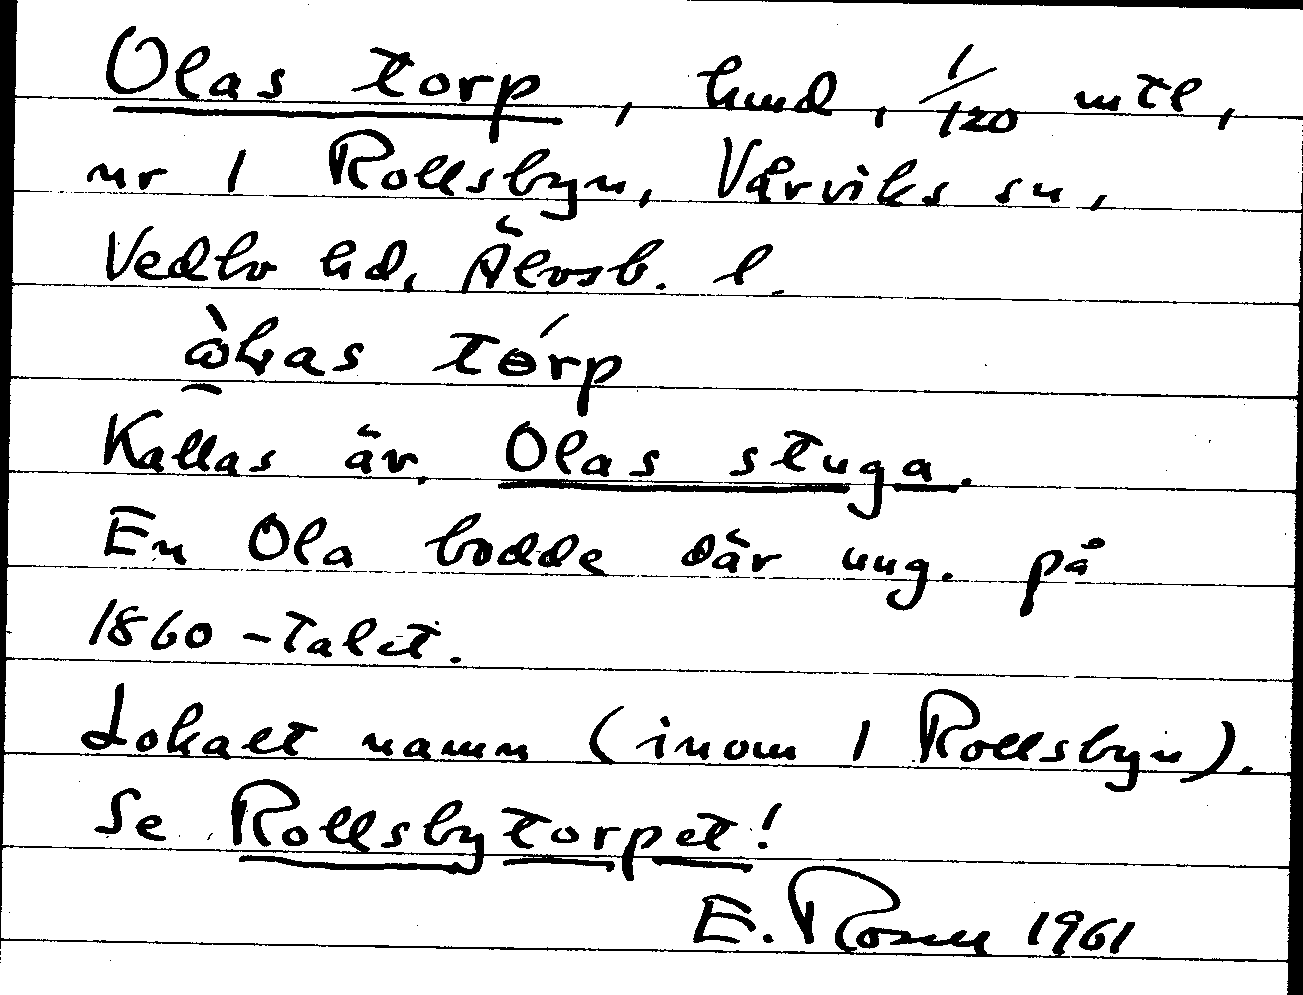 Olas torp, hmd, 1/120 mtl,
nr 1 Rollsbyn, Vårviks sn,
Vedbo hd, Älvsb. l.
tórp
Kallas äv. Olas stuga.
En Ola bodde där ung. på
1860-talet.
Lokalt namn (inom 1 Rollsbyn).
Se Rollsbytorpet!
E. Rosell 1961